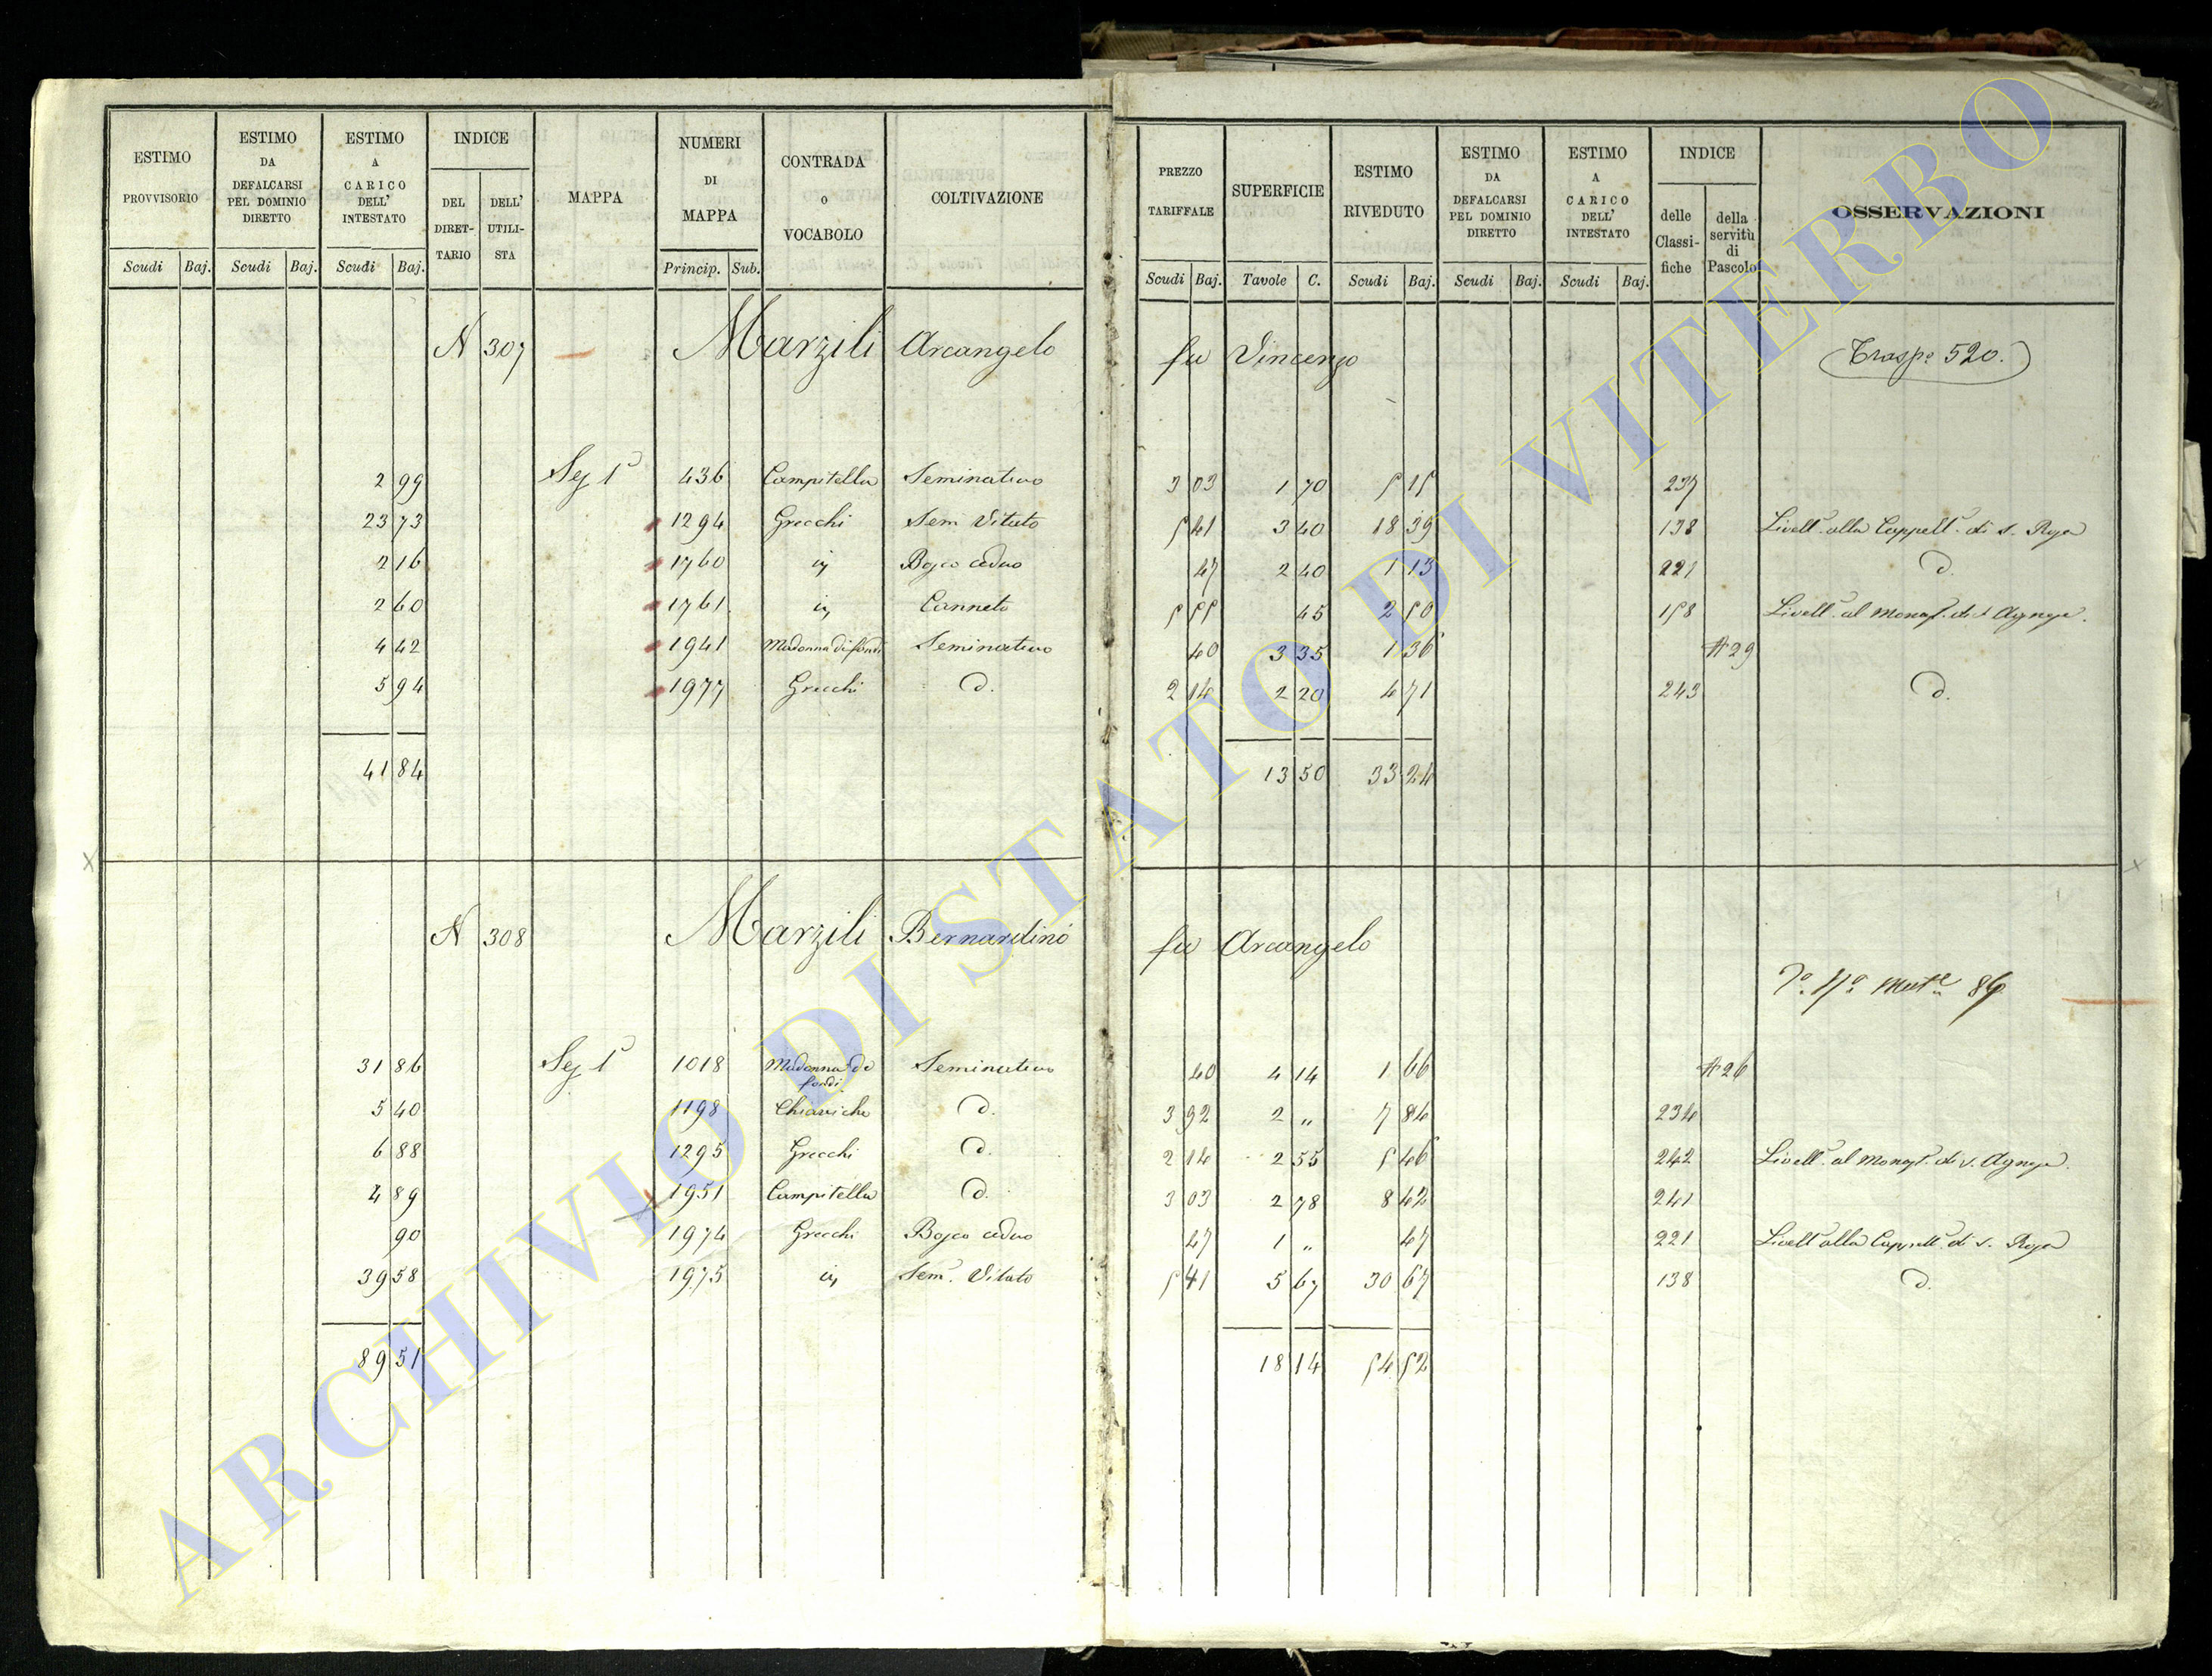 ESTIMO PROVVISORIO Scudi Baj. | ESTIMO DA DEFALCARSI PEL DOMINIO DIRETTO Scudi Baj. | ESTIMO A CARICO DELL' INTESTATO Scudi Baj. | INDICE DEL DIRETTARIO DELL' UTILISTA | MAPPA | NUMERI DI MAPPA Princip. Sub. | CONTRADA o VOCABOLO | COLTIVAZIONE | PREZZO TARIFFALE Scudi Baj. | SUPERFICIE Tavole C. | ESTIMO RIVEDUTO Scudi Baj. | ESTIMO DA DEFALCARSI PEL DOMINIO DIRETTO Scudi Baj. | ESTIMO A CARICO DELL' INTESTATO Scudi Baj. | INDICE delle Classifiche della servitù di Pascolo | OSSERVAZIONI
N 307 Marzili Arcangelo fu Vincenzo Trasp. 520.
2 99 Sez 1ª 436 Campitella Seminativo 3 03 1 70 5 15 237
23 73 1294 Grecchi Sem Vitato 5 41 3 40 18 39 138 Livell. alla Cappell. di S.
2 16 1760 Bosco ceduo 47 2 40 1 13 221 d.
2 60 1761 Canneto 5 55 45 2 50 158 Livell. al Monast. di S Agnese.
4 42 1941 Madonna di fondi Seminativo 40 3 35 1 36 29
5 94 1977 Grecchi d. 2 14 2 20 4 71 243 d.
41 84 13 50 33 24
N 308 Marzili Bernardino fu Arcangelo
86
31 86 Sez 1ª 1018 Madonna de fondi Seminativo 40 4 14 1 66 26
5 40 1198 Chiaviche d. 3 92 2 " 7 84 234
6 88 1295 Grecchi d. 2 14 2 55 5 46 242 Livell. al Monast. di S. Agnese.
4 89 1951 Campitella d. 3 03 2 78 8 42 241
90 1974 Grecchi Bosco ceduo 47 1 " 47 221 Livell alla Cappell. di S.
39 58 1975 Sem. Vitato 5 41 5 67 30 67 138 d.
89 51 18 14 54 52
ARCHIVIO DI STATO DI VITERBO